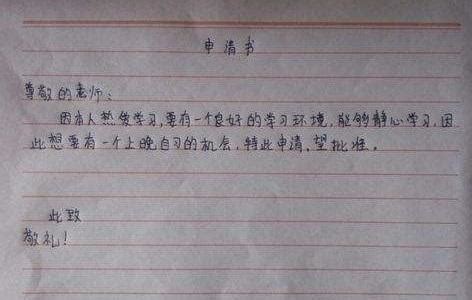 申请书
尊敬的老师：
因本人热爱学习,要有一个良好的学习环境,能够静心学习,因
此想要有一个上晚自习的机会,特此申请,望批准。
此致
敬礼!